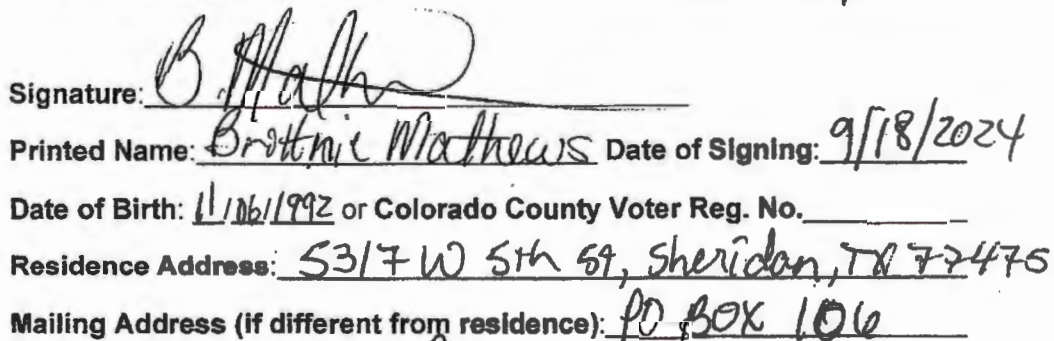 Signature: B. Math
Printed Name: Brittnie Mathews Date of Signing: 9/18/2024
Date of Birth: 11/06/1992 or Colorado County Voter Reg. No.
Residence Address: 5317 W 5th St, Sheridan, TX 77475
Mailing Address (if different from residence): PO BOX 106